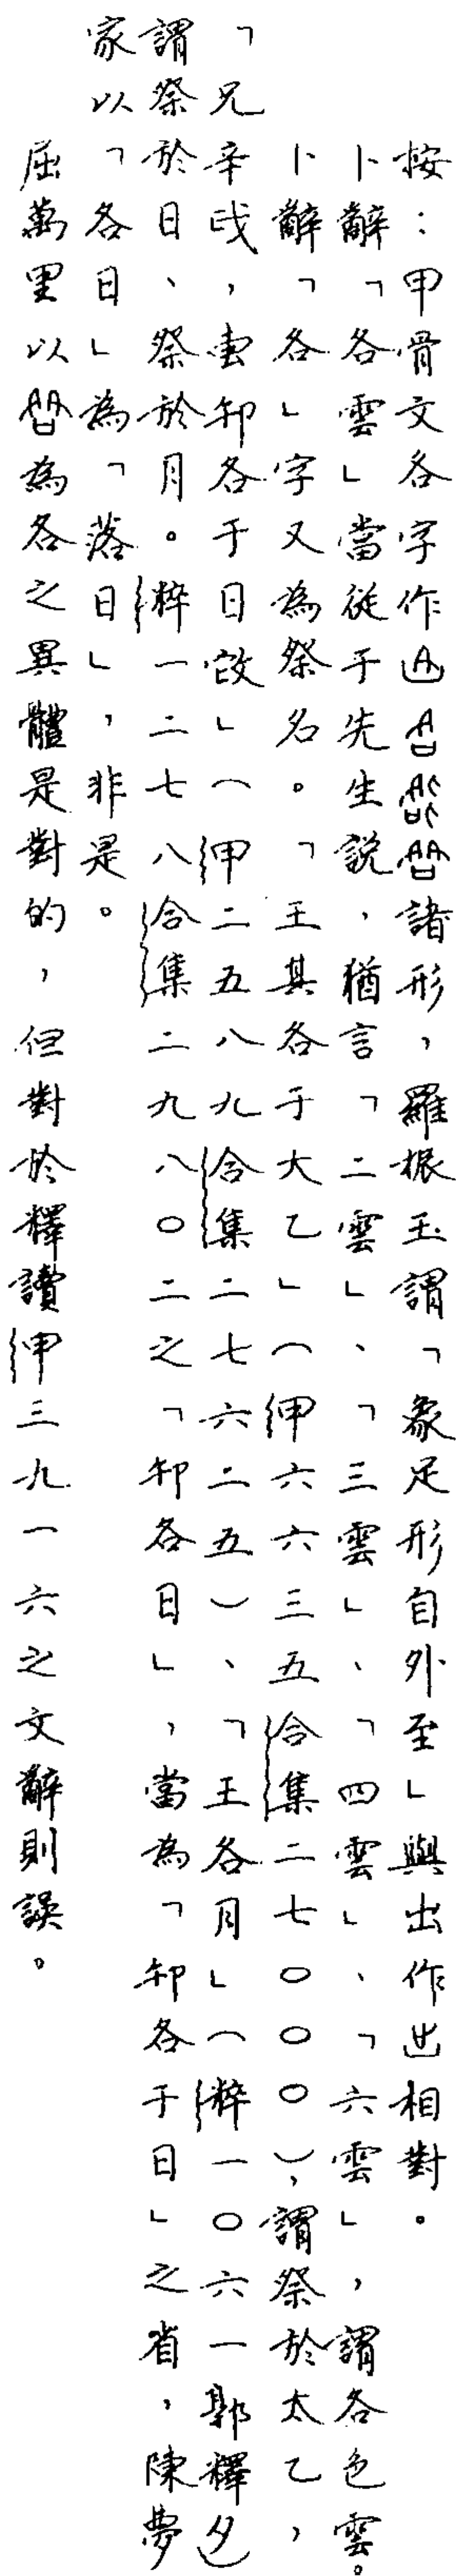 按：甲骨文各字作諸形，羅振玉謂「象足形自外至」與出作相對。
卜辭「各雲」當從于先生説，猶言「二雲」、「三雲」、「四雲」、「六雲」，謂各色雲。
卜辭「各」字又為祭名。「王其各于大乙」（甲六六三五合集二七〇〇〇），謂祭於太乙，
「兄辛歲，叀卯各于日啟」（甲二五八九合集二七六二五）、「王各月」（粹一〇六一郭釋夕）
謂祭於日、祭於月。粹一二七八合集二九八〇二之「卯各日」，當為「卯各于日」之省，陳夢
家以「各日」為「落日」，非是。
屈萬里以為各之異體是對的，但對於釋讀甲三九一六之文辭則誤。